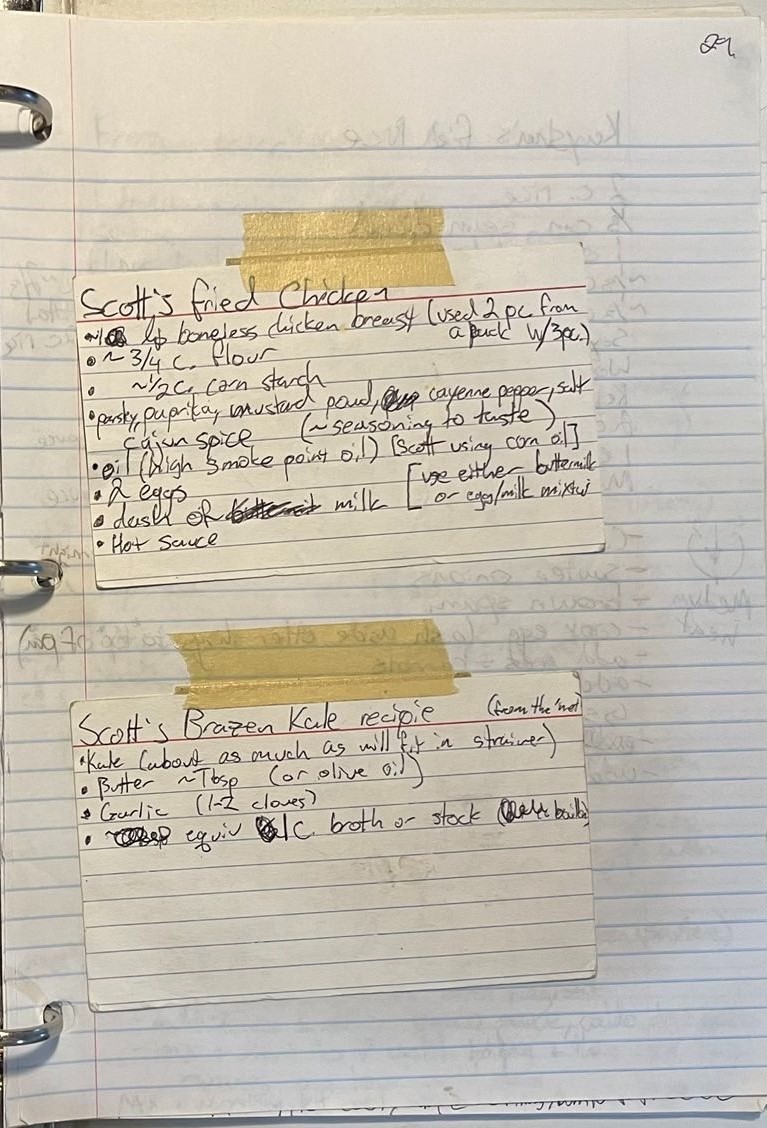 29.
Scott's fried Chicken
lb boneless chicken breast (used 2 pc from
a pack w/3pc.)
• ~ 3/4 c. flour
• ~1/2 c. corn starch
• parsley, paprika, mustard powd, cayenne pepper, salt
cajun spice (~seasoning to taste)
• oil (high smoke point oil) [Scott using corn oil]
• 2 eggs [use either buttermilk
• dash of milk or egg/milk mixture
• Hot sauce
Scott's Brazen Kale recipie (from the 'net)
• Kale (about as much as will fit in strainer)
• Butter ~Tbsp (or olive oil)
• Garlic (1-2 cloves)
• equiv 1 c. broth or stock